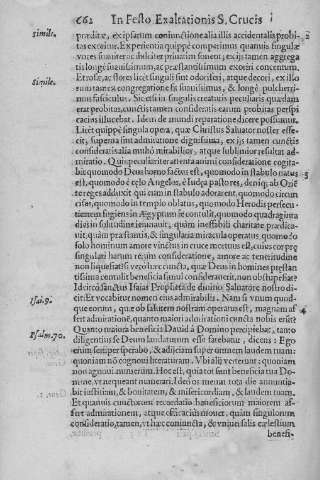 662 In Festo Exaltationis S. Crucis
simile.
præditæ, ex ipsarum coniunctione alia illis accidentalis probi- 2
tas exoritur. Experientia quippe comperimus quamuis singulæ
voces sonitæ ac dulciter priuatim sonent, ex ijs tamen aggrega
tis longè suauissimum, ac præstantissimum exoriri concentum.
Simile.
Et rosæ, ac flores licet singuli sint odoriferi, atque decori, ex illo
rum tamen congregatione fit suauissimus, & longè pulcherri-
mus fasciculus. Sic etsi in singulis creaturis peculiaris quædam
erat probitas, cunctis tamen consideratis earum probitas perspi
cacius illucebat. Idem de mundi reparatione dicere possumus.
Licèt quippè singula opera, quæ Christus Saluator noster effe-
cit, superna sint admiratione dignissima, ex ijs tamen cunctis
consideratis alia multò mirabilior, atque sublimior resultat ad-
miratio. Quis peculiariter attenta animi consideratione cogita-
bit quomodo Deus homo factus est, quomodo in stabulo natus 3
est, quomodo è cœlo Angelos, è Iudæa pastores, deniq; ab Oriē
te reges adduxit qui eum in stabulo adorarent, quomodo circum
cisus, quomodo in templo oblatus, quomodo Herodis persecu-
tionem fugiens in Ægyptum se contulit, quomodo quadraginta
dies in solitudine ieiunauit, quàm ineffabili charitate prædica-
uit, quàm præstantia, & singularia miracula operatus, quomodo
solo hominum amore vinctus in cruce mortuus est, cuius
singulari harum rerum consideratione, amore ac teneritudine
non liquefiat? si verò hæc cuncta, quæ Deus in homines præstan
tissima contulit beneficia simul considerauerit, non obstupescat?
Isai. 9.
Idcircò sanctus Isaias Propheta de diuino Saluatore nostro di-
cit: Et vocabitur nomen eius admirabilis. Nam si vnum quod-
que eorum, quæ ob salutem nostram operatus est, magnam af 4
fert admirationē, quanto maiori admirationi cuncta nobis erūt?
Psalm. 70.
Quanto maiora beneficia Dauid à Domino precipiebat, tanto
diligentius se Deum laudaturum esse fatebatur, dicens: Ego
autem semper sperabo, & adijciam super omnem laudem tuam:
quoniam nō cognoui literaturam. Vbi alij verterunt: quoniam
non agnoui numerum. Hoc est, quia tot sunt beneficia tua Do-
mine, vt nequeant numerari. Ideò os meum tota die annuntia-
bit iustitiam, & bonitatem, & misericordiam, & laudem tuam.
Et quamuis cunctorum recordatio beneficiorum maiorem af-
fert admirationem, atque efficaciùs mouet, quàm singulorum
consideratio, tamen, vt hæc coniuncta, & vniuersalis cælestium
benefi-